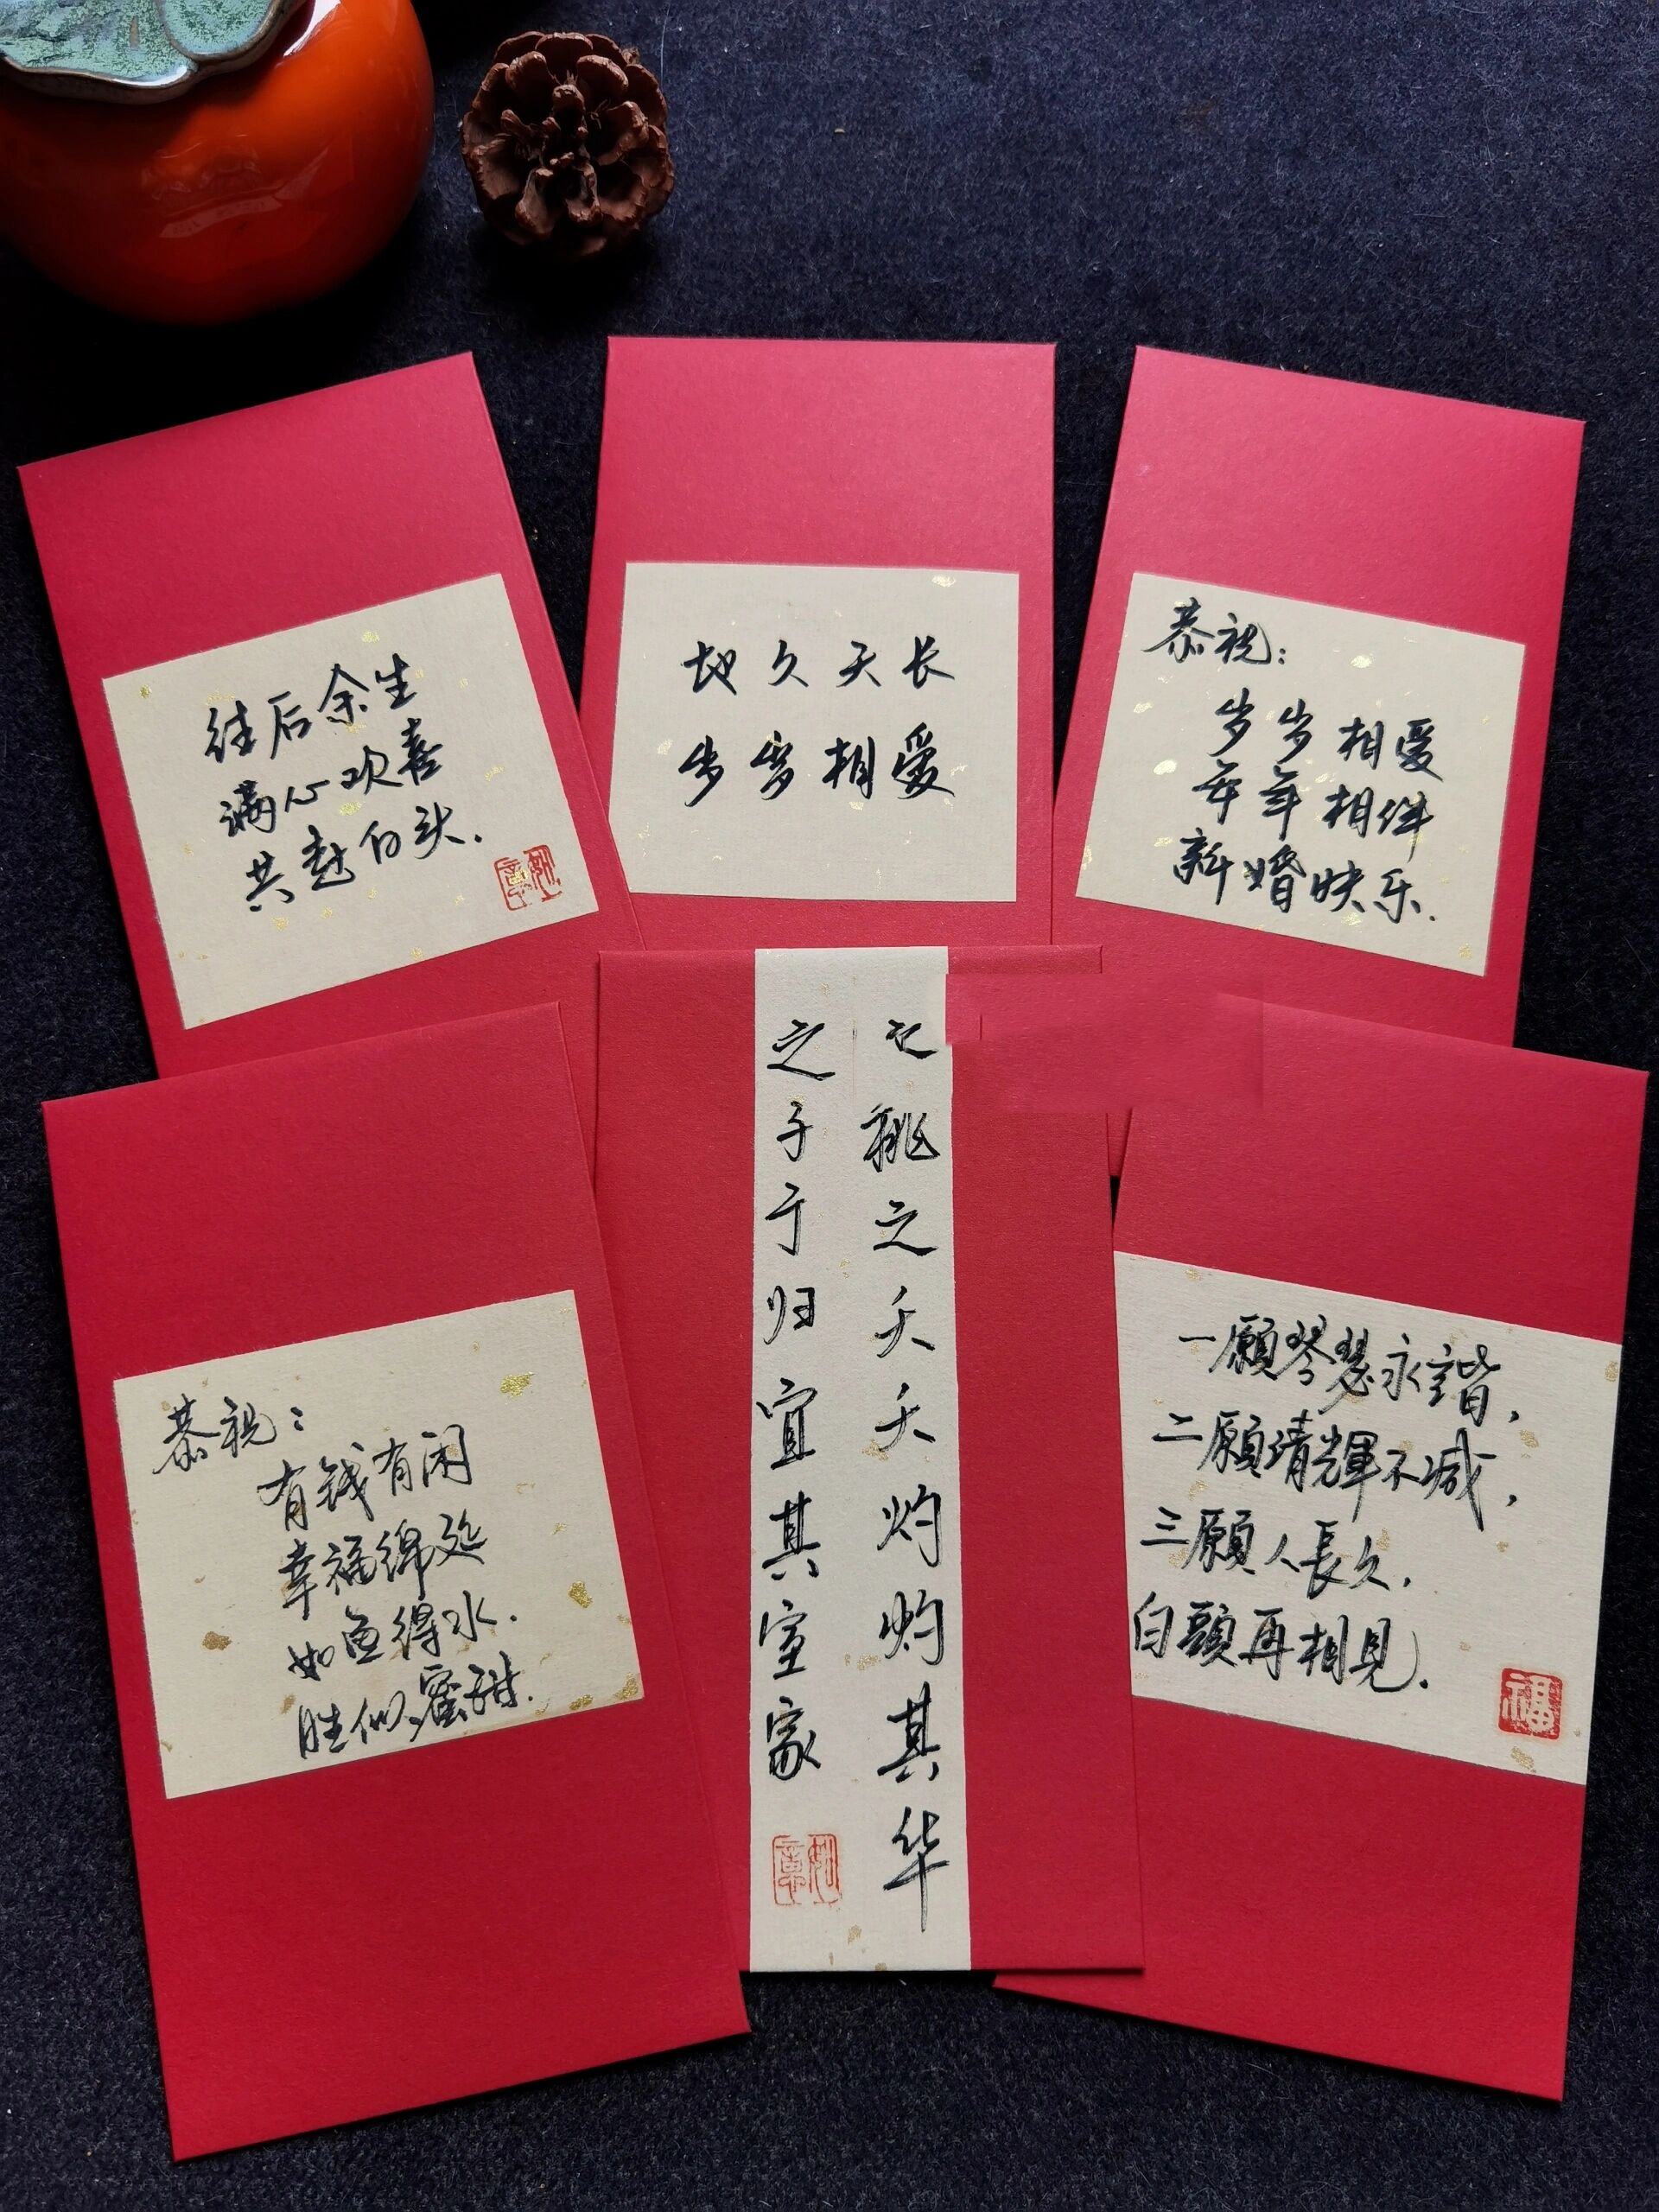 往后余生
满心欢喜
共赴白头.
地久天长
岁岁相爱
恭祝:
岁岁相爱
年年相伴
新婚快乐.
恭祝:
有钱有闲
幸福绵延
如鱼得水.
胜似蜜甜.
桃之夭夭灼灼其华
之子于归宜其室家
一願琴瑟永諧,
二願清輝不減,
三願人長久.
白頭再相見.
福